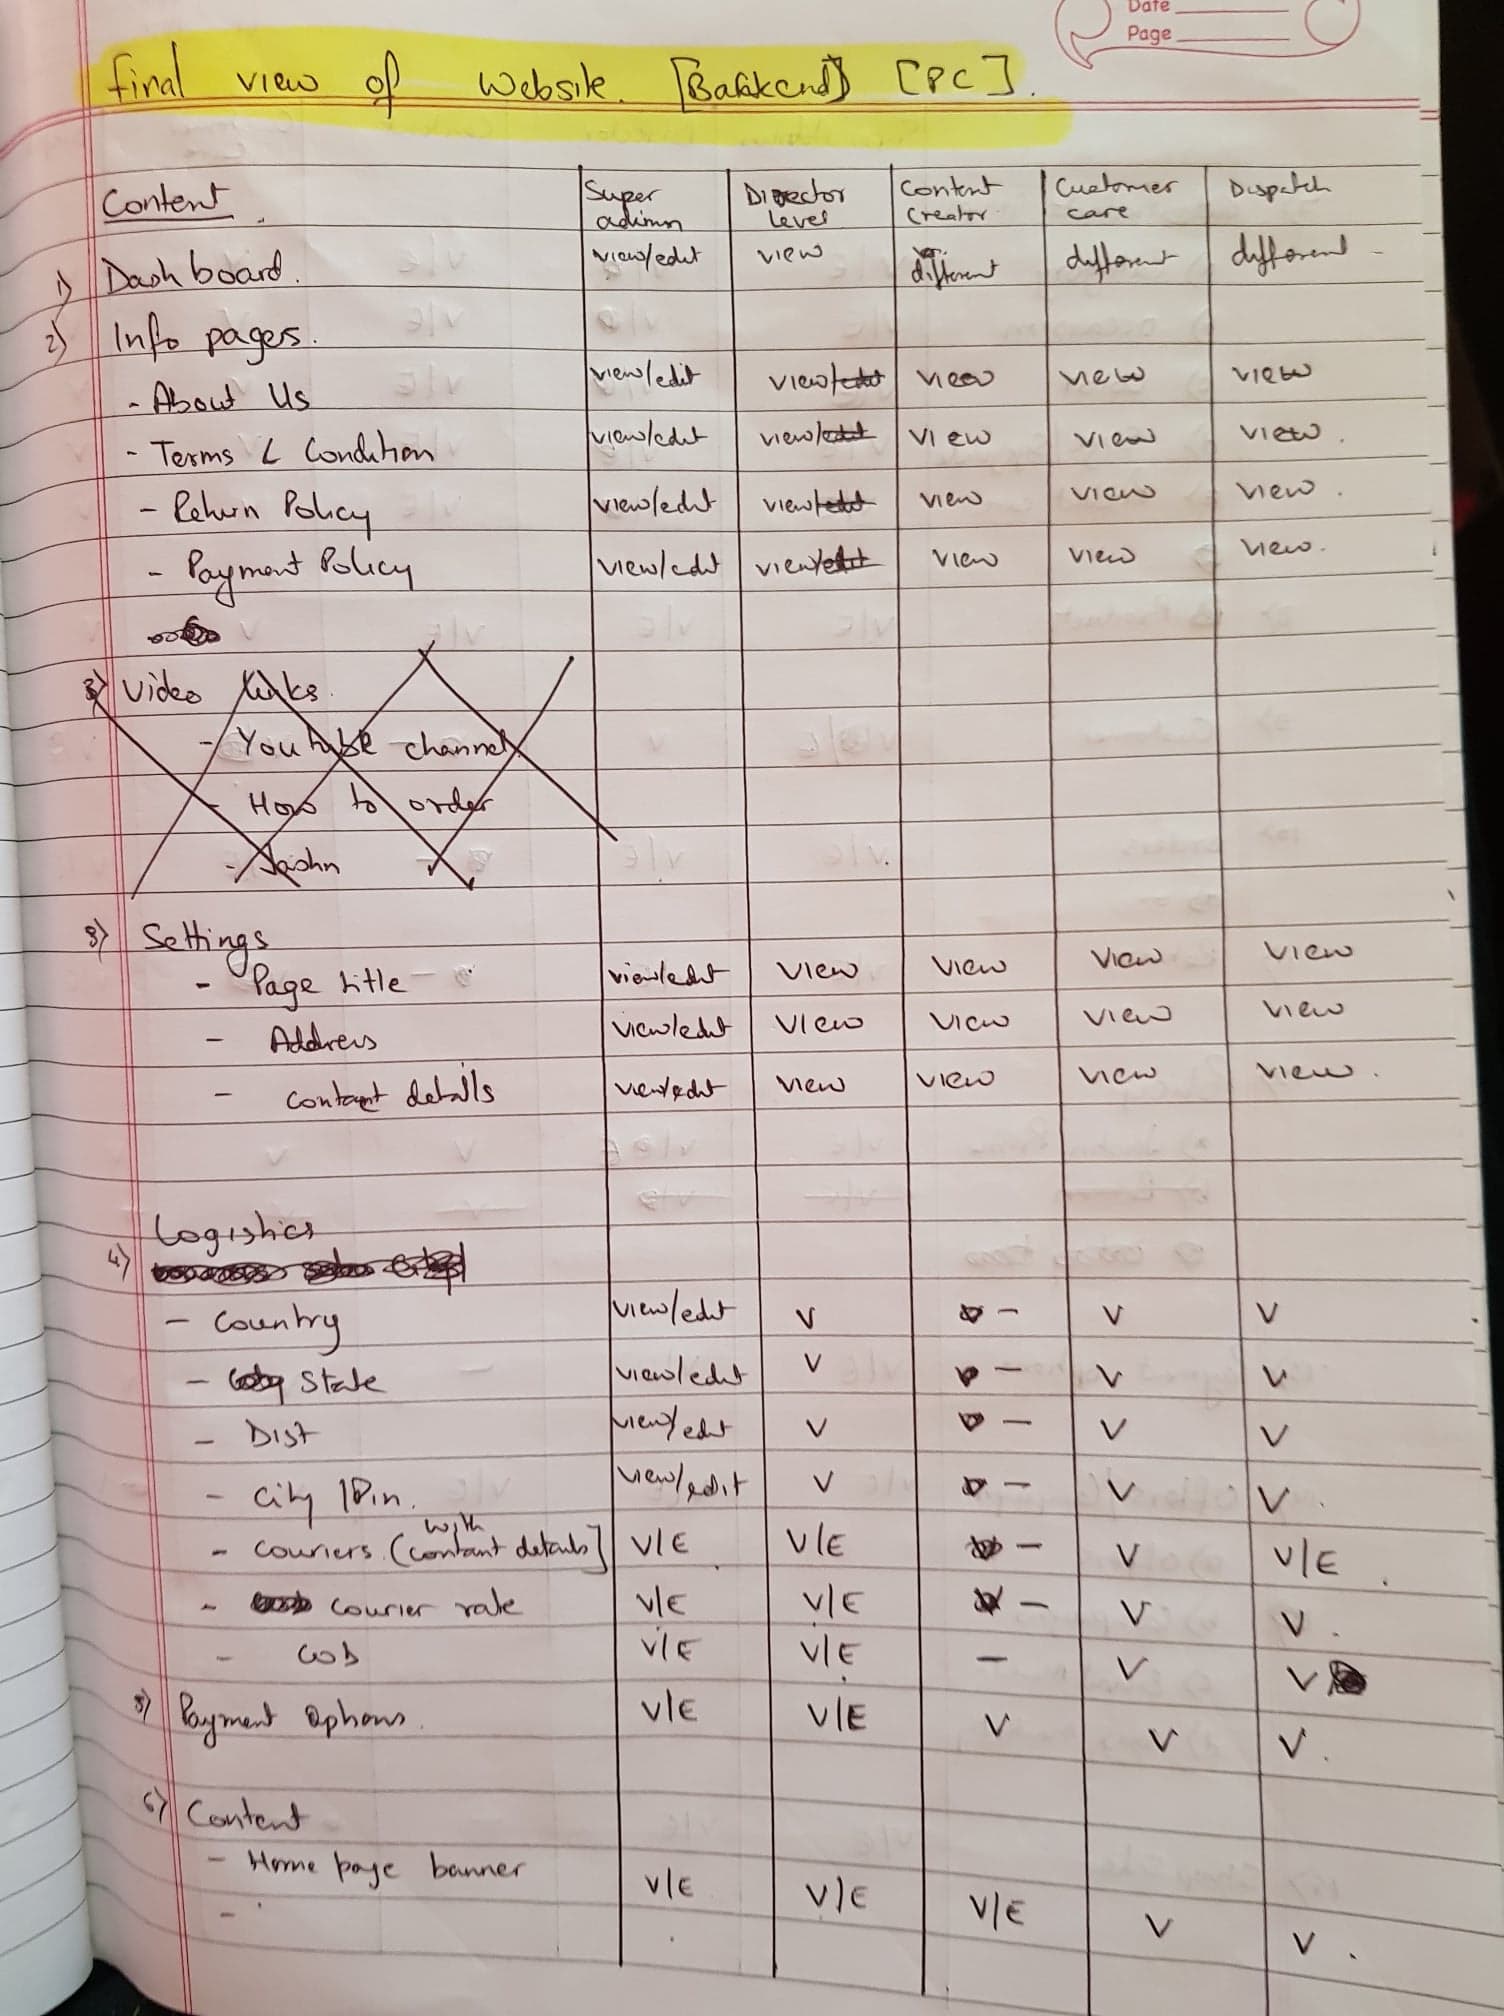 Date
Page
Final view of Website. [Backend] [PC].
Content Super admin Director level Content Creator Customer care Dispatch
1) Dashboard. view/edit view different different different -
2) Info pages.
- About Us view/edit view/edit view view view
- Terms & Condition view/edit view/edit view view view.
- Return Policy view/edit view/edit view view view.
- Payment Policy view/edit view/edit view view view.
3) Video links.
- Youtube channel
- How to order
- Jashn
3) Settings
- Page title view/edit view view view view
- Address view/edit view view view view
- contact details view/edit view view view view.
4) Logistics
- Country view/edit V - V V
- State view/edit V - V V
- Dist view/edit V - V V
- City/Pin. view/edit V - V V.
- Couriers (with contant details] V/E V/E - V V/E.
- Courier rate V/E V/E - V V.
- COD V/E V/E - V V
5) Payment Options. V/E V/E V V V.
6) Content
- Home page banner V/E V/E V/E V V.
-